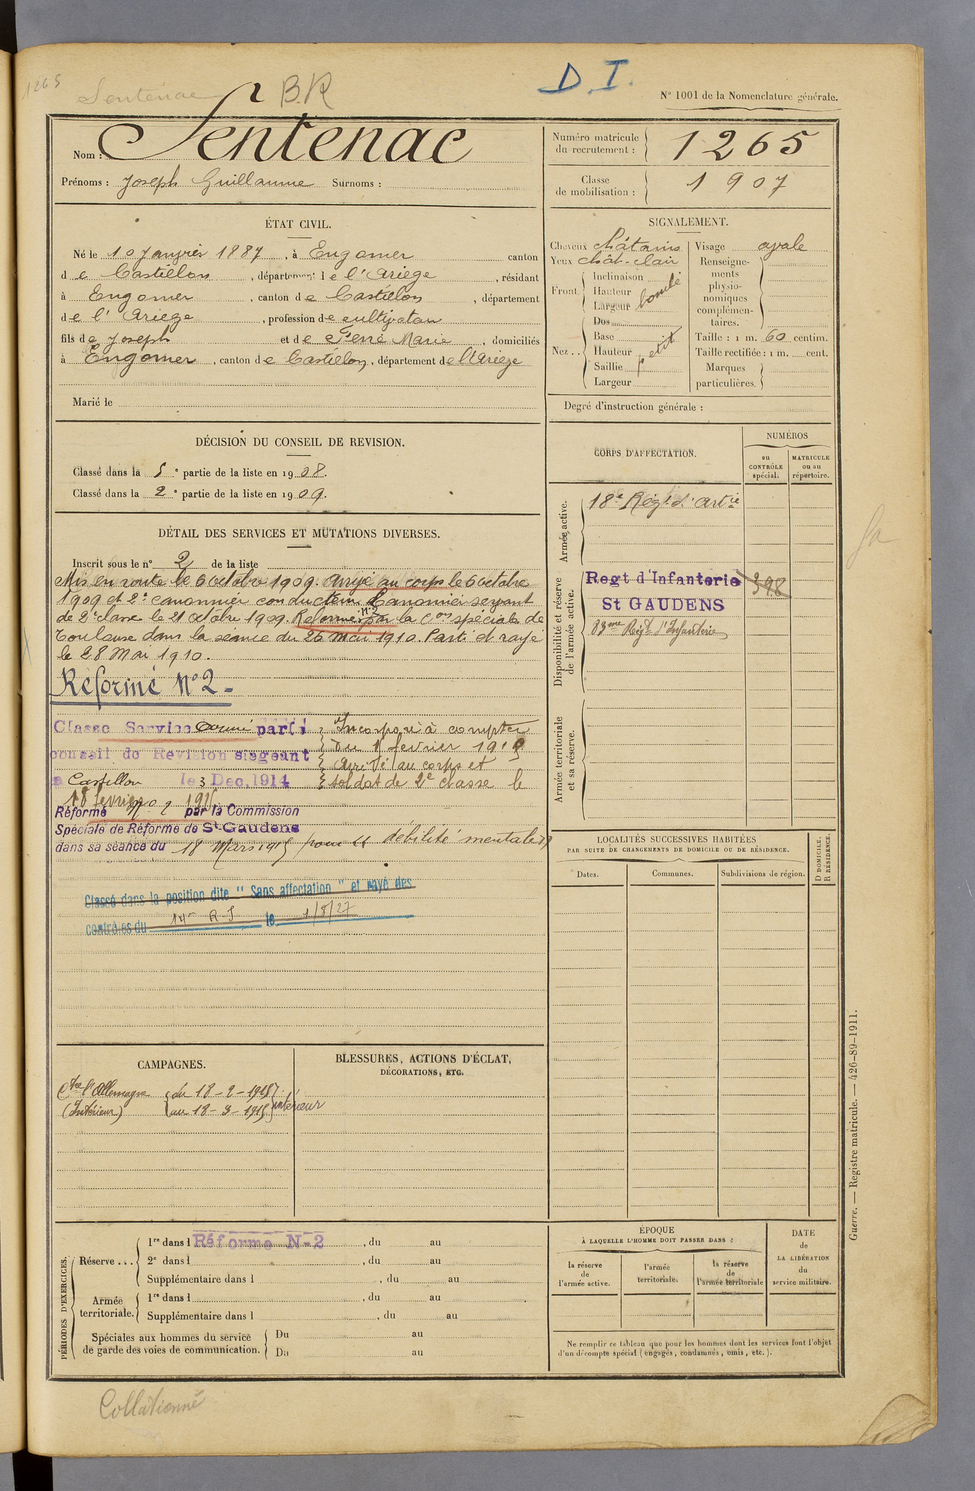 1265
Sentenac
BR
D. I.
N° 1001 de la Nomenclature générale.
Nom : Sentenac
Prénoms : Joseph Guillaume Surnoms :
Numéro matricule du recrutement : 1265
Classe de mobilisation : 1907
ÉTAT CIVIL.
Né le 10 Janvier 1887, à Engomer canton
de Castillon, département de l'Ariège, résidant
à Engomer, canton de Castillon, département
de l'Ariège, profession de cultivateur
fils de Joseph et de Marie, domiciliés
à Engomer, canton de Castillon, département de l'Ariège
Marié le
SIGNALEMENT.
Cheveux châtains
Yeux chât-clair
Front
Inclinaison
Hauteur
Largeur
bombé
Nez
Dos
Base
Hauteur
Saillie
Largeur
petit
Visage ovale
Renseignements physionomiques complémentaires.
Taille : 1 m. 60 centim.
Taille rectifiée : 1 m. cent.
Marques particulières.
Degré d'instruction générale :
DÉCISION DU CONSEIL DE REVISION.
Classé dans la 5e partie de la liste en 1908.
Classé dans la 2e partie de la liste en 1909.
DÉTAIL DES SERVICES ET MUTATIONS DIVERSES.
Inscrit sous le n° 2 de la liste
Mis en route le 6 octobre 1909. Arrivé au corps le 6 octobre
1909 et 2e canonnier conducteur. Canonnier servant
de 2e classe le 21 octobre 1909. Réformé n°2 par la Con spéciale de
Toulouse dans la séance du 26 Mai 1910. Parti et rayé
le 28 Mai 1910.
Réformé N°2-
Classé Service armé par le
conseil de Revision siégeant
à Castillon le 3 Dec. 1914
Incorporé à compter
du février 191
Arrivé au corps et
soldat de 2e classe le
18 février 1915
Réformé No 2 par la Commission
Spéciale de Réforme de St-Gaudens
dans sa séance du 18 Mars 1915 pour "débilité mentale"
Classé dans la position dite "Sans affectation" et rayé des
contrôles du 14me R.I. le 1/8/27
CORPS D'AFFECTATION.
NUMÉROS
au CONTRÔLE spécial.
MATRICULE ou au répertoire.
Armée active.
18e Régt d'Artie
Disponibilité et réserve de l'armée active.
Regt d'Infanterie 398
St GAUDENS
83me Régt d'Infanterie
Armée territoriale et sa réserve.
LOCALITÉS SUCCESSIVES HABITÉES
PAR SUITE DE CHANGEMENTS DE DOMICILE OU DE RÉSIDENCE.
Dates.
Communes.
Subdivisions de région.
D DOMICILE. R RÉSIDENCE.
CAMPAGNES.
Ctre l'Allemagne (Intérieur)
du 18-2-1915
au 18-3-1915
intérieur
BLESSURES, ACTIONS D'ÉCLAT,
DÉCORATIONS, ETC.
PÉRIODES D'EXERCICES.
Réserve ...
1re dans l Réformé N-2, du au
2e dans l, du au
Supplémentaire dans l, du au
Armée territoriale.
1re dans l, du au
Supplémentaire dans l, du au
Spéciales aux hommes du service de garde des voies de communication.
Du au
Du au
ÉPOQUE
À LAQUELLE L'HOMME DOIT PASSER DANS :
la réserve de l'armée active.
l'armée territoriale.
la réserve de l'armée territoriale
DATE de LA LIBÉRATION du service militaire.
Ne remplir ce tableau que pour les hommes dont les services font l'objet
d'un décompte spécial (engagés, condamnés, omis, etc.).
Guerre. — Registre matricule. — 426-89-1911.
Collationné